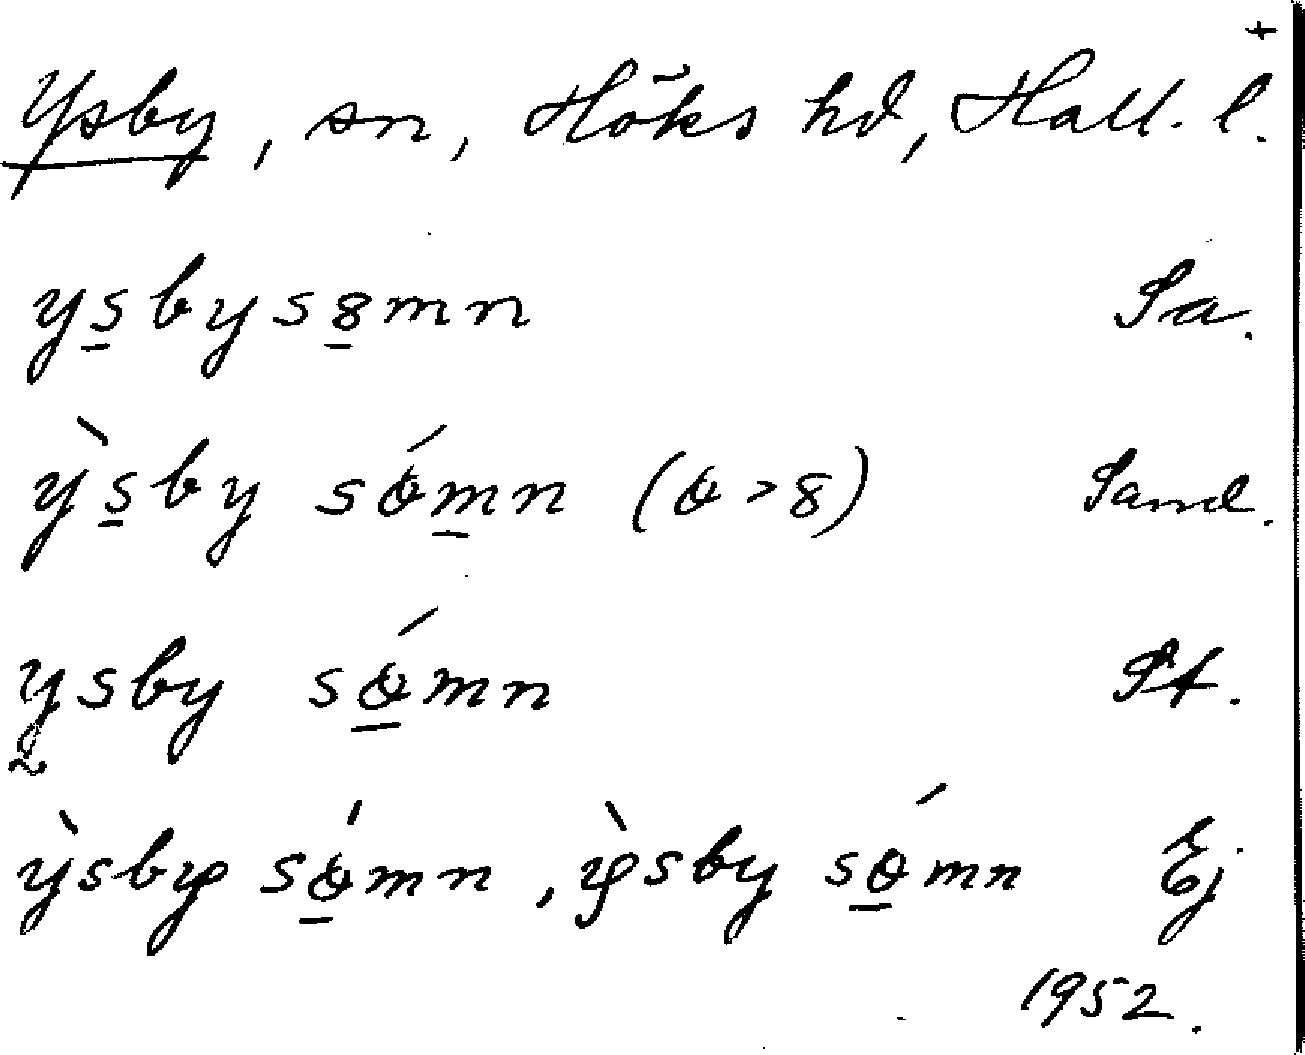 +
Ysby, sn, Höks hd, Hall. l.
ys̲bys8̲mn Sa.
ỳs̲by sɵ́m̲n (ɵ > 8) Sand.
y̰sby sɵ̲́mn St.
ỳsbyͼ sɵ̲́mn, ỳsby sɵ̲́mn Ej
1952.